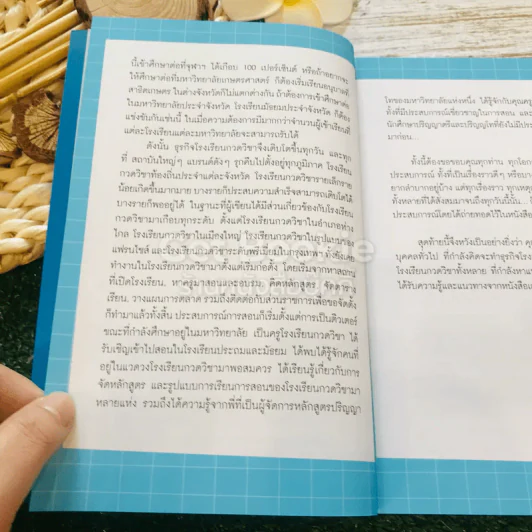 นี้เข้าศึกษาต่อที่จุฬาฯ ได้เกือบ 100 เปอร์เซ็นต์ หรือถ้าอยากจะ
ให้ศึกษาต่อที่มหาวิทยาลัยเกษตรศาสตร์ ก็ต้องเริ่มเรียนอนุบาลที่
สาธิตเกษตร ในต่างจังหวัดก็ไม่แตกต่างกัน ถ้าต้องการเข้าศึกษาต่อ
ในมหาวิทยาลัยประจำจังหวัด โรงเรียนมัธยมประจำจังหวัด ก็ต้อง
แข่งขันกันเช่นนี้ ในเมื่อความต้องการมีมากกว่าจำนวนผู้เข้าเรียนที่
แต่ละโรงเรียนแต่ละมหาวิทยาลัยจะสามารถรับได้
ดังนั้น ธุรกิจโรงเรียนกวดวิชาจึงเติบโตขึ้นทุกวัน และทุก
ที่ สถาบันใหญ่ๆ แบรนด์ดังๆ รุกคืบไปตั้งอยู่ทุกภูมิภาค โรงเรียน
กวดวิชาท้องถิ่นประจำแต่ละจังหวัด โรงเรียนกวดวิชารายเล็กราย
น้อยเกิดขึ้นมากมาย บางรายก็ประสบความสำเร็จสามารถเติบโตได้
บางรายก็พออยู่ได้ ในฐานะที่ผู้เขียนได้มีส่วนเกี่ยวข้องกับโรงเรียน
กวดวิชามาเกือบทุกระดับ ตั้งแต่โรงเรียนกวดวิชาในอำเภอห่าง
ไกล โรงเรียนกวดวิชาในเมืองใหญ่ โรงเรียนกวดวิชาในรูปแบบของ
แฟรนไชส์ และโรงเรียนกวดวิชาระดับพรีเมียมในกรุงเทพฯ ทั้งยังเคย
ทำงานในโรงเรียนกวดวิชามาตั้งแต่เริ่มก่อตั้ง โดยเริ่มจากหาสถานที่
ที่เปิดโรงเรียน, หาครูมาสอนและอบรม, คิดหลักสูตร, จัดตาราง
เรียน, วางแผนการตลาด รวมถึงติดต่อกับส่วนราชการเพื่อขอจัดตั้ง
ก็ทำมาแล้วทั้งสิ้น ประสบการณ์การสอนก็เริ่มตั้งแต่การเป็นติวเตอร์
ขณะที่กำลังศึกษาอยู่ในมหาวิทยาลัย เป็นครูโรงเรียนกวดวิชา ได้
รับเชิญเข้าไปสอนในโรงเรียนประถมและมัธยม ได้พบได้รู้จักคนที่
อยู่ในแวดวงโรงเรียนกวดวิชามาพอสมควร ได้เรียนรู้เกี่ยวกับการ
จัดหลักสูตร และรูปแบบการเรียนการสอนของโรงเรียนกวดวิชามา
หลายแห่ง รวมถึงได้ความรู้จากพี่ที่เป็นผู้จัดการหลักสูตรปริญญา
โทของมหาวิทยาลัยแห่งหนึ่ง ได้รู้จักกับคุณครู
ที่มีประสบการณ์เชี่ยวชาญในการสอน และ
นักศึกษาปริญญาตรีและปริญญาโทที่ยังไม่มีประ
มาก่อน...
ทั้งนี้ต้องขอขอบคุณทุกท่าน ทุกโอก
ประสบการณ์ ทั้งที่เป็นเรื่องราวดีๆ หรือบาง
ยากลำบากอยู่บ้าง แต่ทุกเรื่องราว ทุกเหตุ
ทั้งหลายที่ได้สั่งสมมาจนถึงทุกวันนี้นั้น.. จึ
ประสบการณ์โดยได้ถ่ายทอดไว้ในหนังสือ
สุดท้ายนี้จึงหวังเป็นอย่างยิ่งว่า คุ
บุคคลทั่วไป ที่กำลังคิดจะทำธุรกิจโรง
โรงเรียนกวดวิชาทั้งหลาย ที่กำลังหาแ
ได้รับความรู้และแนวทางจากหนังสือเ